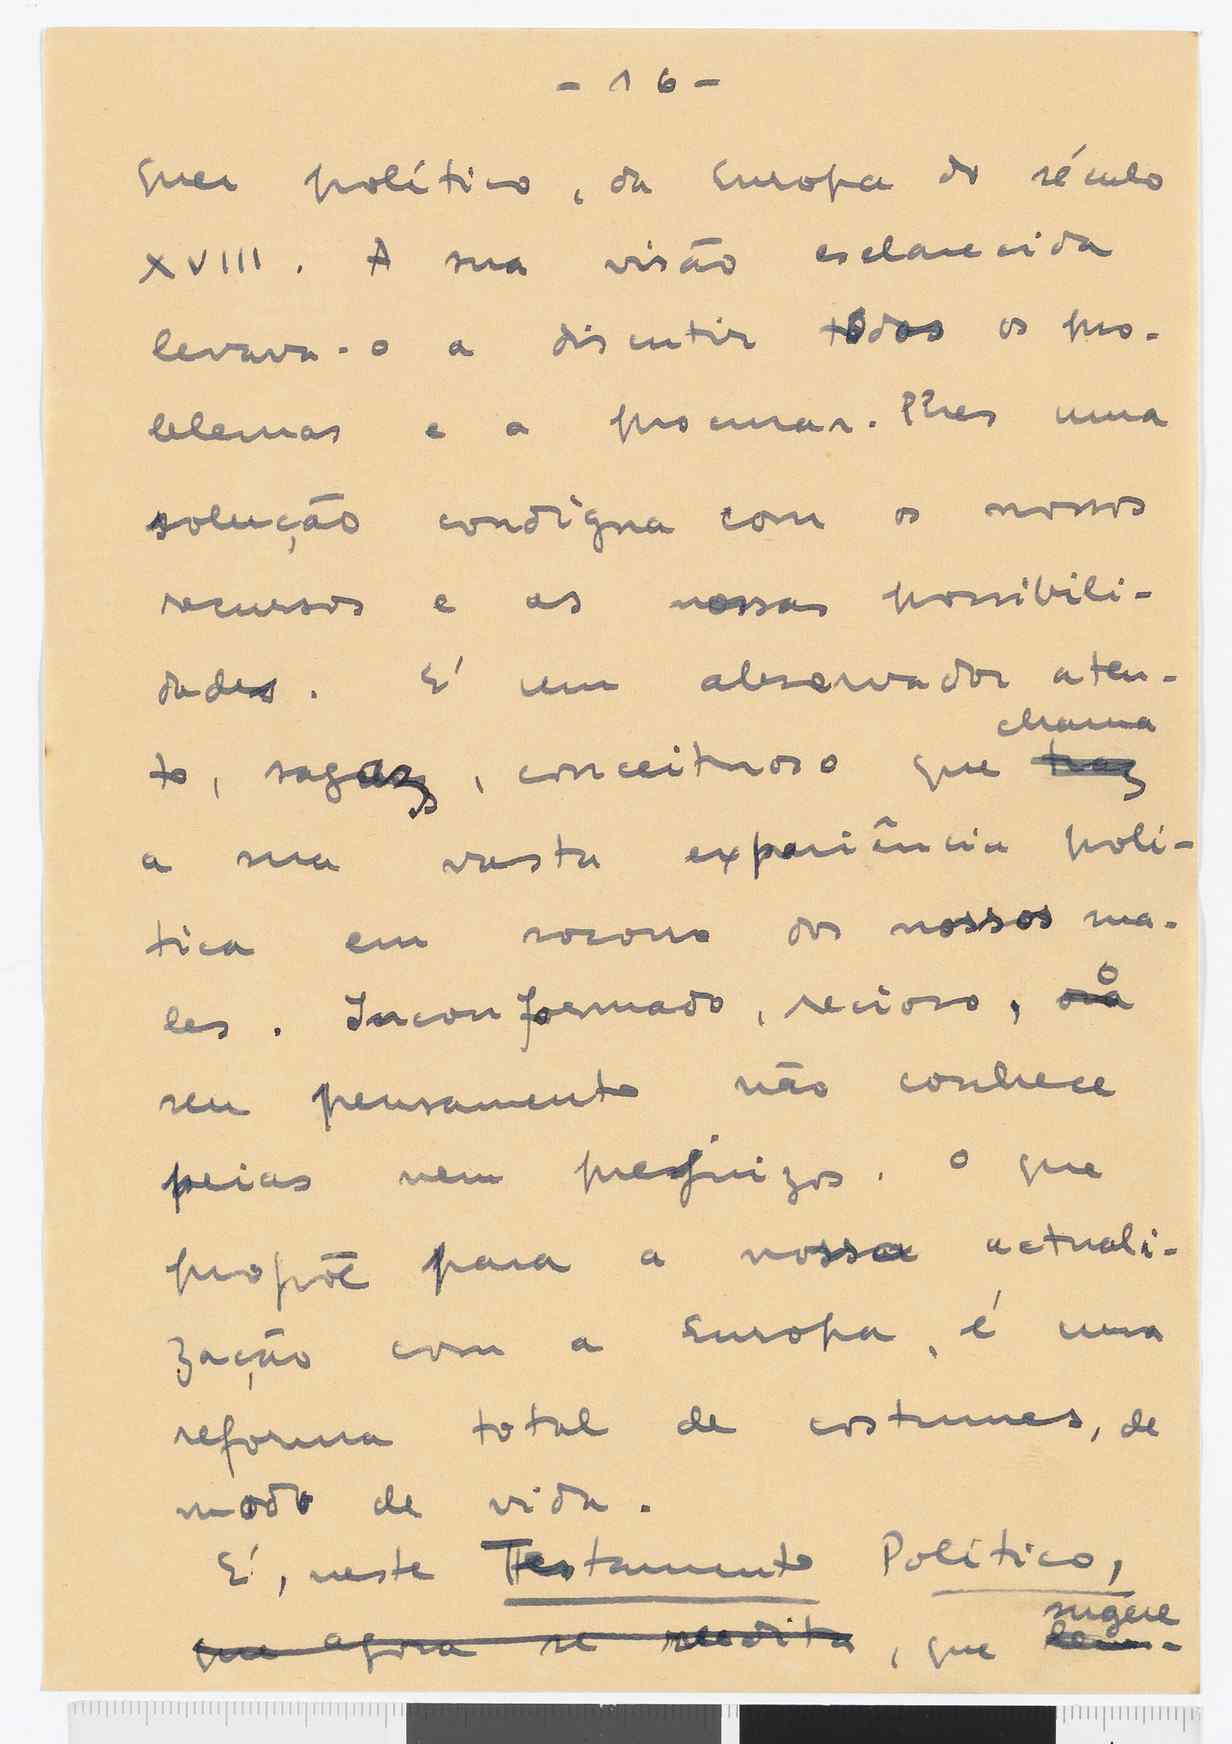 - 16 -
quer político, da Europa do século
XVIII. A sua visão esclarecida
levava-o a discutir todos os pro-
blemas e a procurar-lhes uma
solução condigna com os nossos
recursos e as nossas possibili-
dades. É um observador aten-
chama
to, sagaz, conceituoso que traz
a sua vasta experiência polí-
tica em socorro dos nossos ma-
les. Inconformado, recioso, o
seu pensamento não conhece
peias nem prejuizos. O que
propõe para a nossa actuali-
zação com a Europa, é uma
reforma total de costumes, de
modo de vida.
É, neste Testamento Político,
sugere
que agora se reedita, que